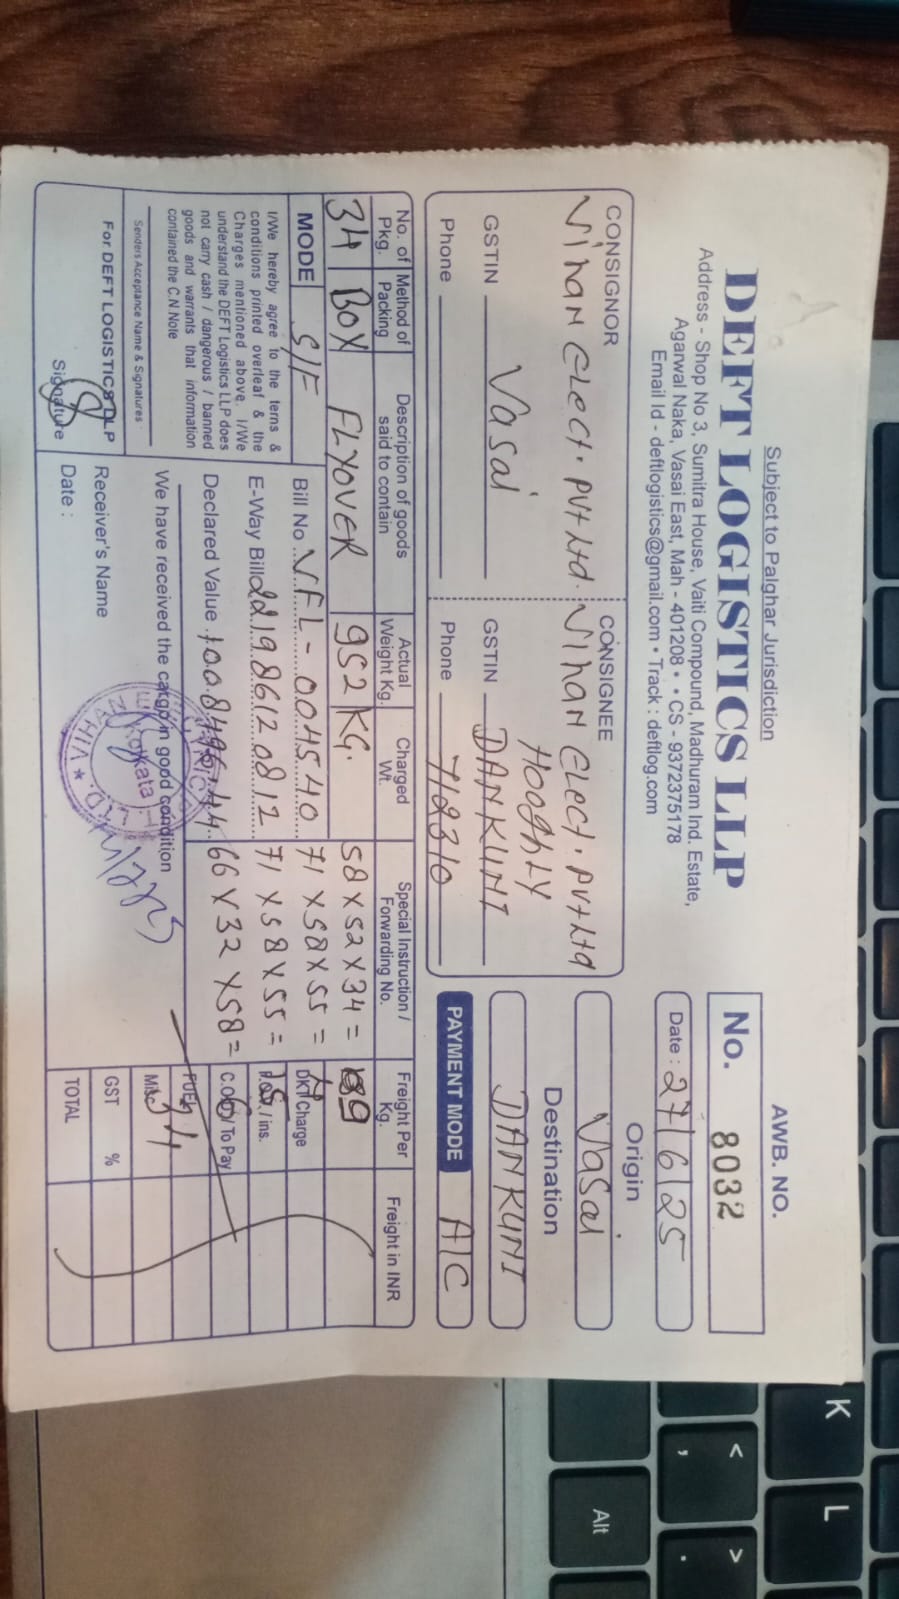 Subject to Palghar Jurisdiction
DEFT LOGISTICS LLP
Address - Shop No 3, Sumitra House, Vaiti Compound, Madhuram Ind. Estate,
Agarwal Naka, Vasai East, Mah - 401208 • • CS - 9372375178
Email Id - deftlogistics@gmail.com • Track : deftlog.com
AWB. NO.
No. 8032
Date : 27/6/25
CONSIGNOR
Vihan Elect. Pvt Ltd.
Vasai
GSTIN
Phone
CONSIGNEE
Vihan Elect. Pvt Ltd
Hooghly
GSTIN DANKUNI
Phone 712310
Origin
Vasai
Destination
DANKUNI
PAYMENT MODE A/C
No. of Pkg. Method of Packing Description of goods said to contain Actual Weight Kg. Charged Wt. Special Instruction / Forwarding No. Freight Per Kg. Freight in INR
34 BOX FLYOVER 952 KG. 58 x 52 x 34 =
MODE S/F Bill No. VFL-004540 71 x 58 x 55 = DKT Charge
E-Way Bill 221986120812 71 x 58 x 55 = / ins.
Declared Value 66 x 32 x 58 = / To Pay
FUEL
Misc
GST %
TOTAL
I/We hereby agree to the terns &
conditions printed overleaf & the
Charges mentioned above, I/We
understand the DEFT Logistics LLP does
not carry cash / dangerous / banned
goods and warrants that information
contained the C.N Note
Senders Acceptance Name & Signatures
For DEFT LOGISTICS LLP
Signature
We have received the cargo in good condition
Receiver's Name
Date :
Kolkata
K
L
<
,
>
.
Alt